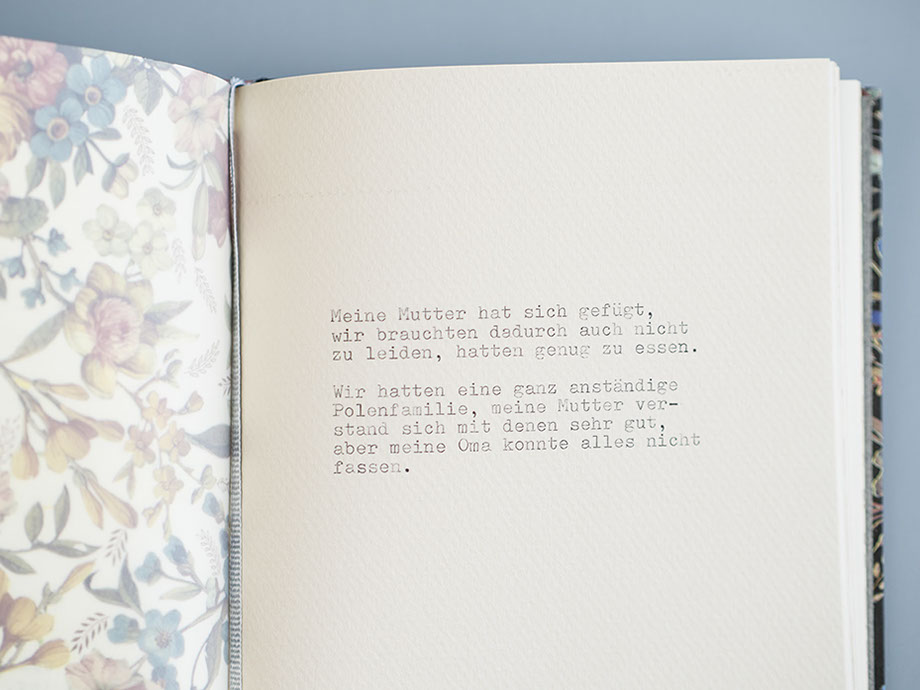 Meine Mutter hat sich gefügt,
wir brauchten dadurch auch nicht
zu leiden, hatten genug zu essen.
Wir hatten eine ganz anständige
Polenfamilie, meine Mutter ver-
stand sich mit denen sehr gut,
aber meine Oma konnte alles nicht
fassen.